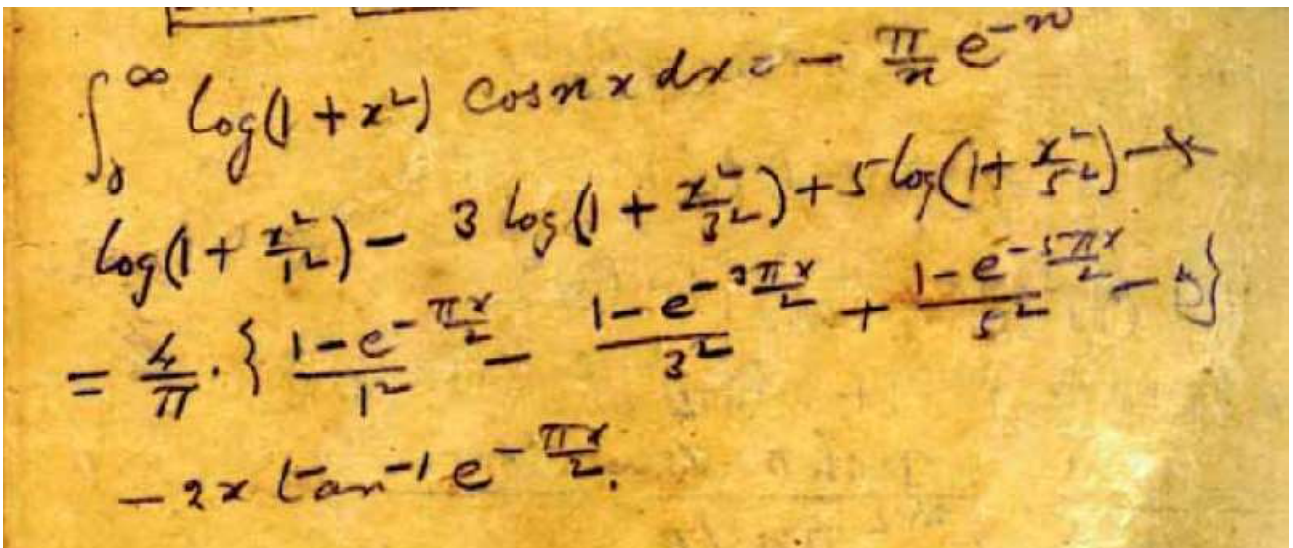 ∫₀^∞ log(1 + x²) cos nx dx = − π/n e^{−n}
log(1 + x²/1²) − 3 log(1 + x²/3²) + 5 log(1 + x²/5²) − &
= 4/π · { (1 − e^{−πx/2})/1² − (1 − e^{−3πx/2})/3² + (1 − e^{−5πx/2})/5² − &}
− 2x tan⁻¹ e^{−πx/2}.